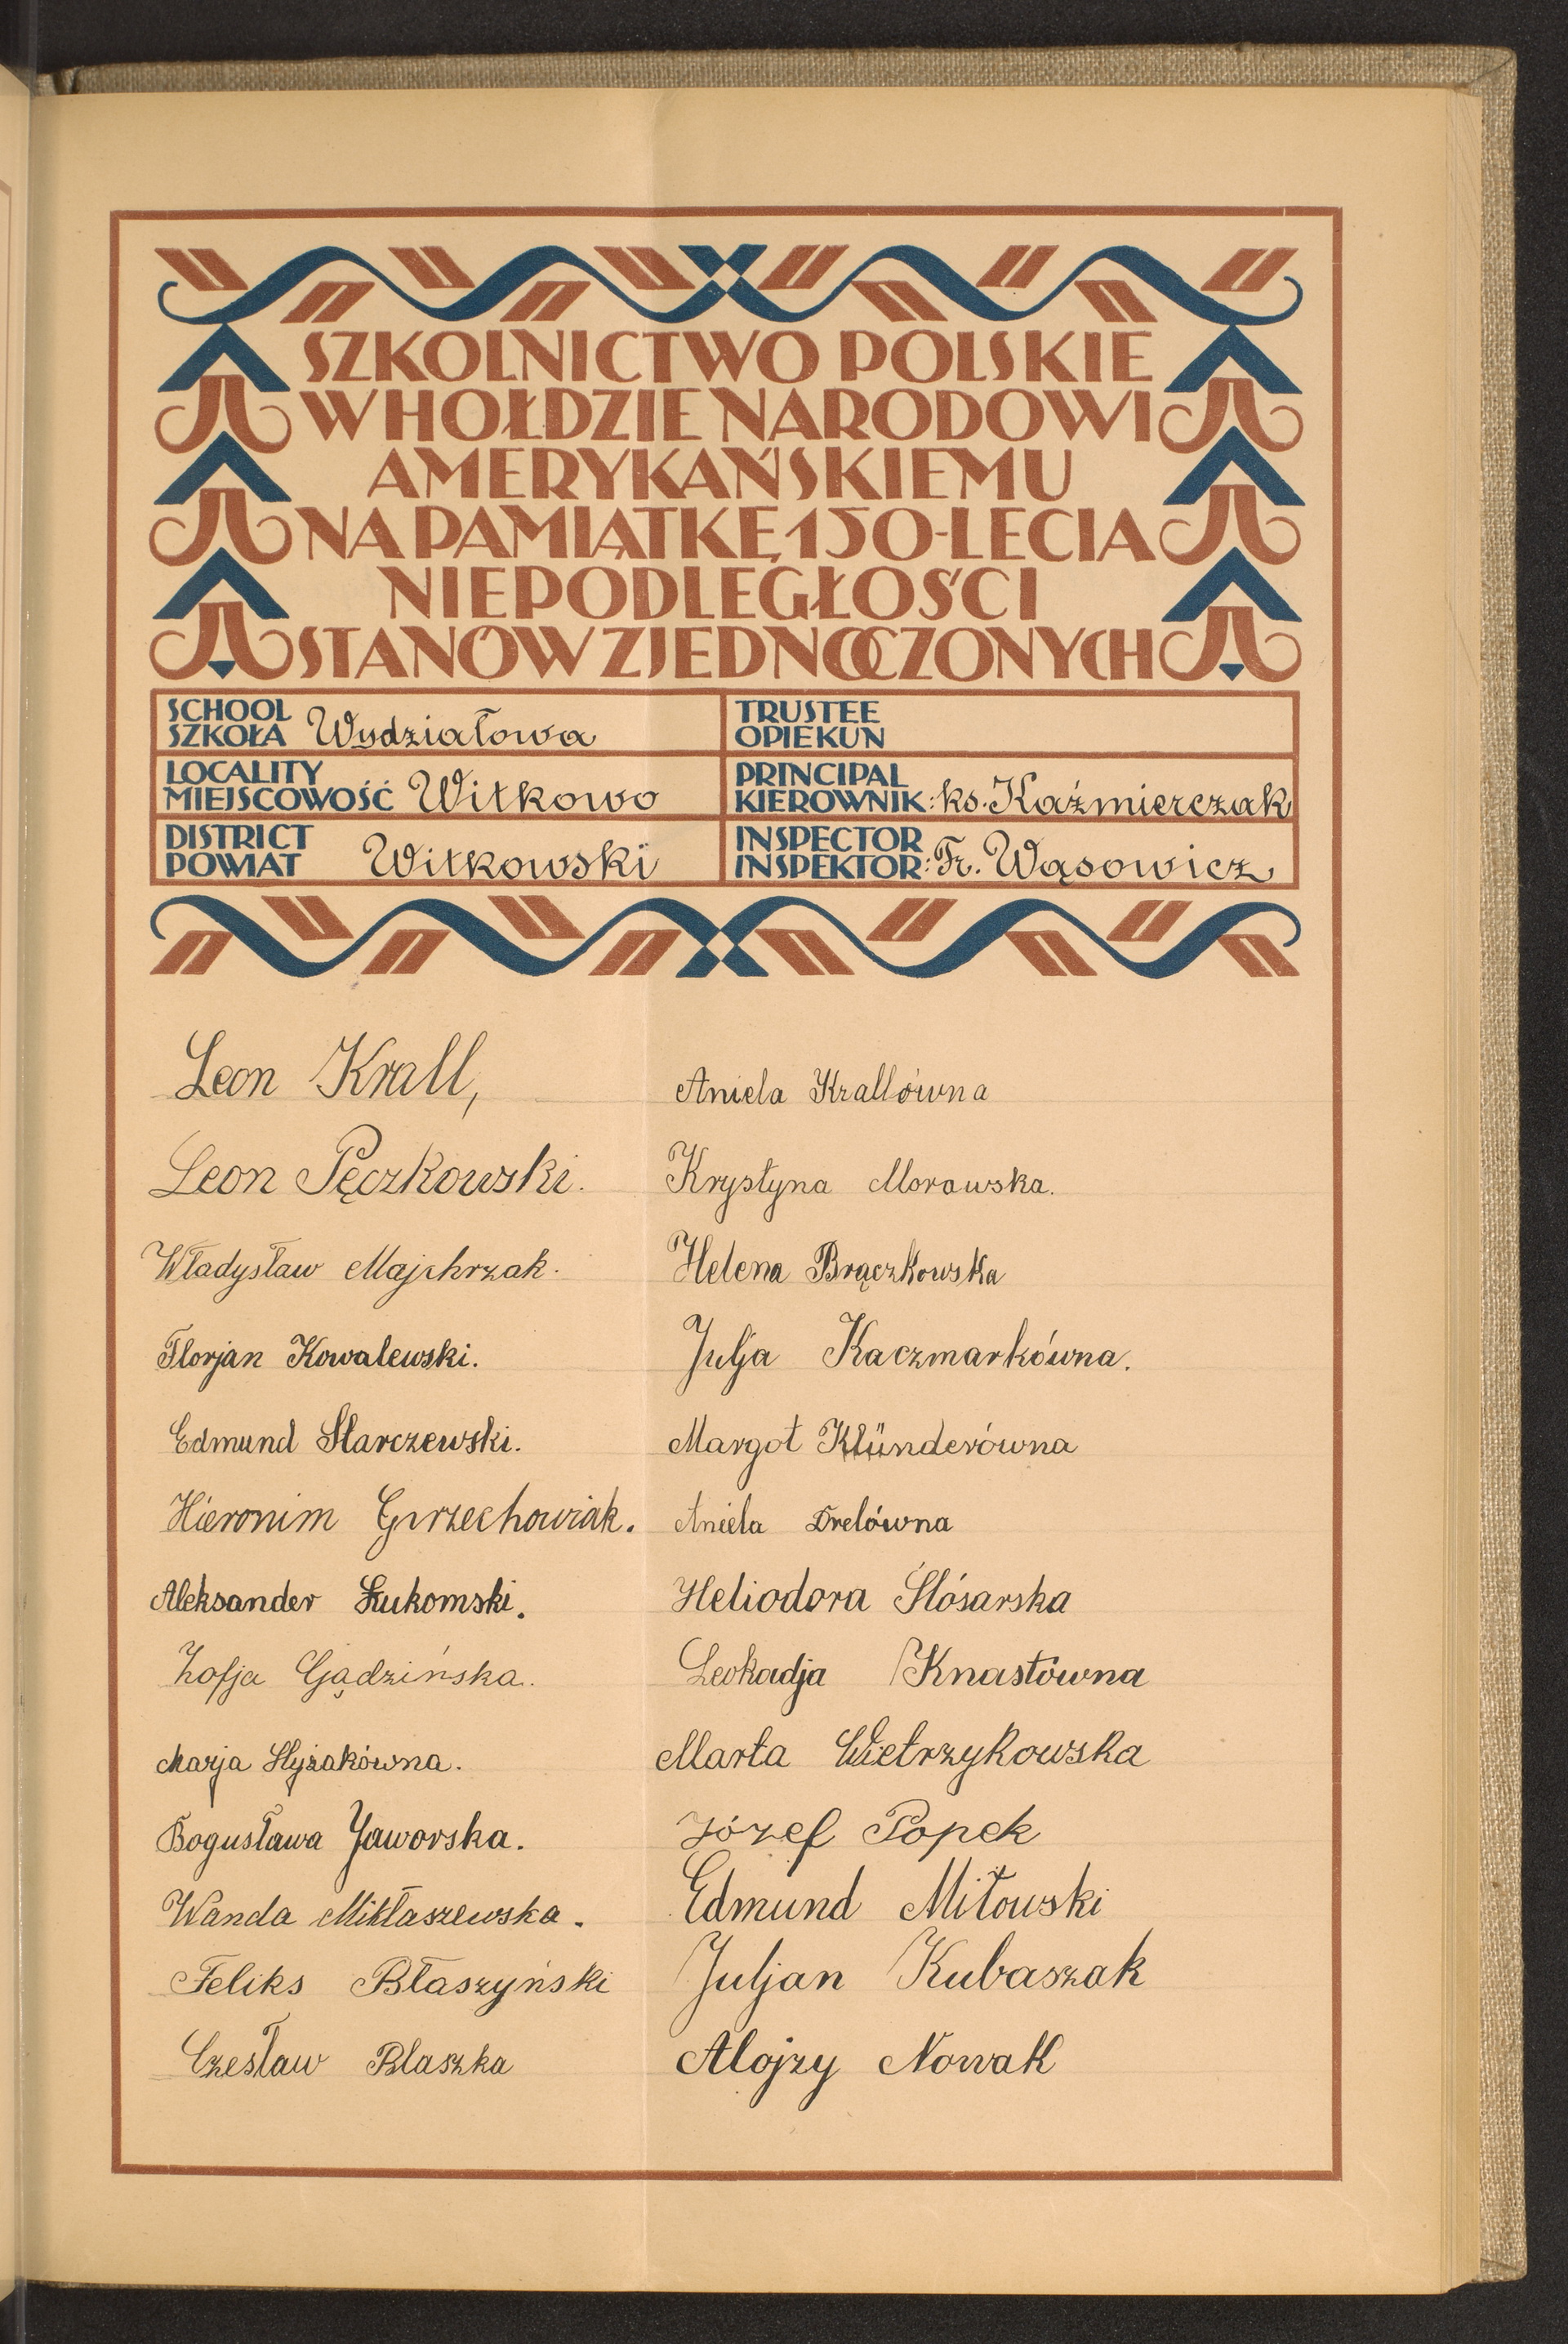 SZKOLNICTWO POLSKIE
W HOŁDZIE NARODOWI
AMERYKAŃSKIEMU
NA PAMIĄTKĘ 150-LECIA
NIEPODLEGŁOŚCI
STANÓW ZJEDNOCZONYCH
SCHOOL
SZKOŁA Wydziałowa
TRUSTEE
OPIEKUN
LOCALITY
MIEJSCOWOŚĆ Witkowo
PRINCIPAL
KIEROWNIK: ks. Kaźmierczak
DISTRICT
POWIAT Witkowski
INSPECTOR
INSPEKTOR: Fr. Wąsowicz
Leon Krall,
Leon Pęczkowski.
Władysław Majchrzak.
Florjan Kowalewski.
Edmund Starczewski.
Hieronim Grzechowiak.
Aleksander Łukomski.
Zofja Gądzińska.
Marja Hyżakówna.
Bogusława Jaworska.
Wanda Mikłaszewska.
Feliks Błaszyński
Czesław Blaszka
Aniela Krallówna
Krystyna Morawska.
Helena Brączkowska
Julja Kaczmarkówna.
Margot Klünderówna
Aniela Drelówna
Heliodora Ślósarska
Leokadja Knastówna
Marta Wietrzykowska
Józef Popek
Edmund Miłowski
Juljan Kubaszak
Alojzy Nowak